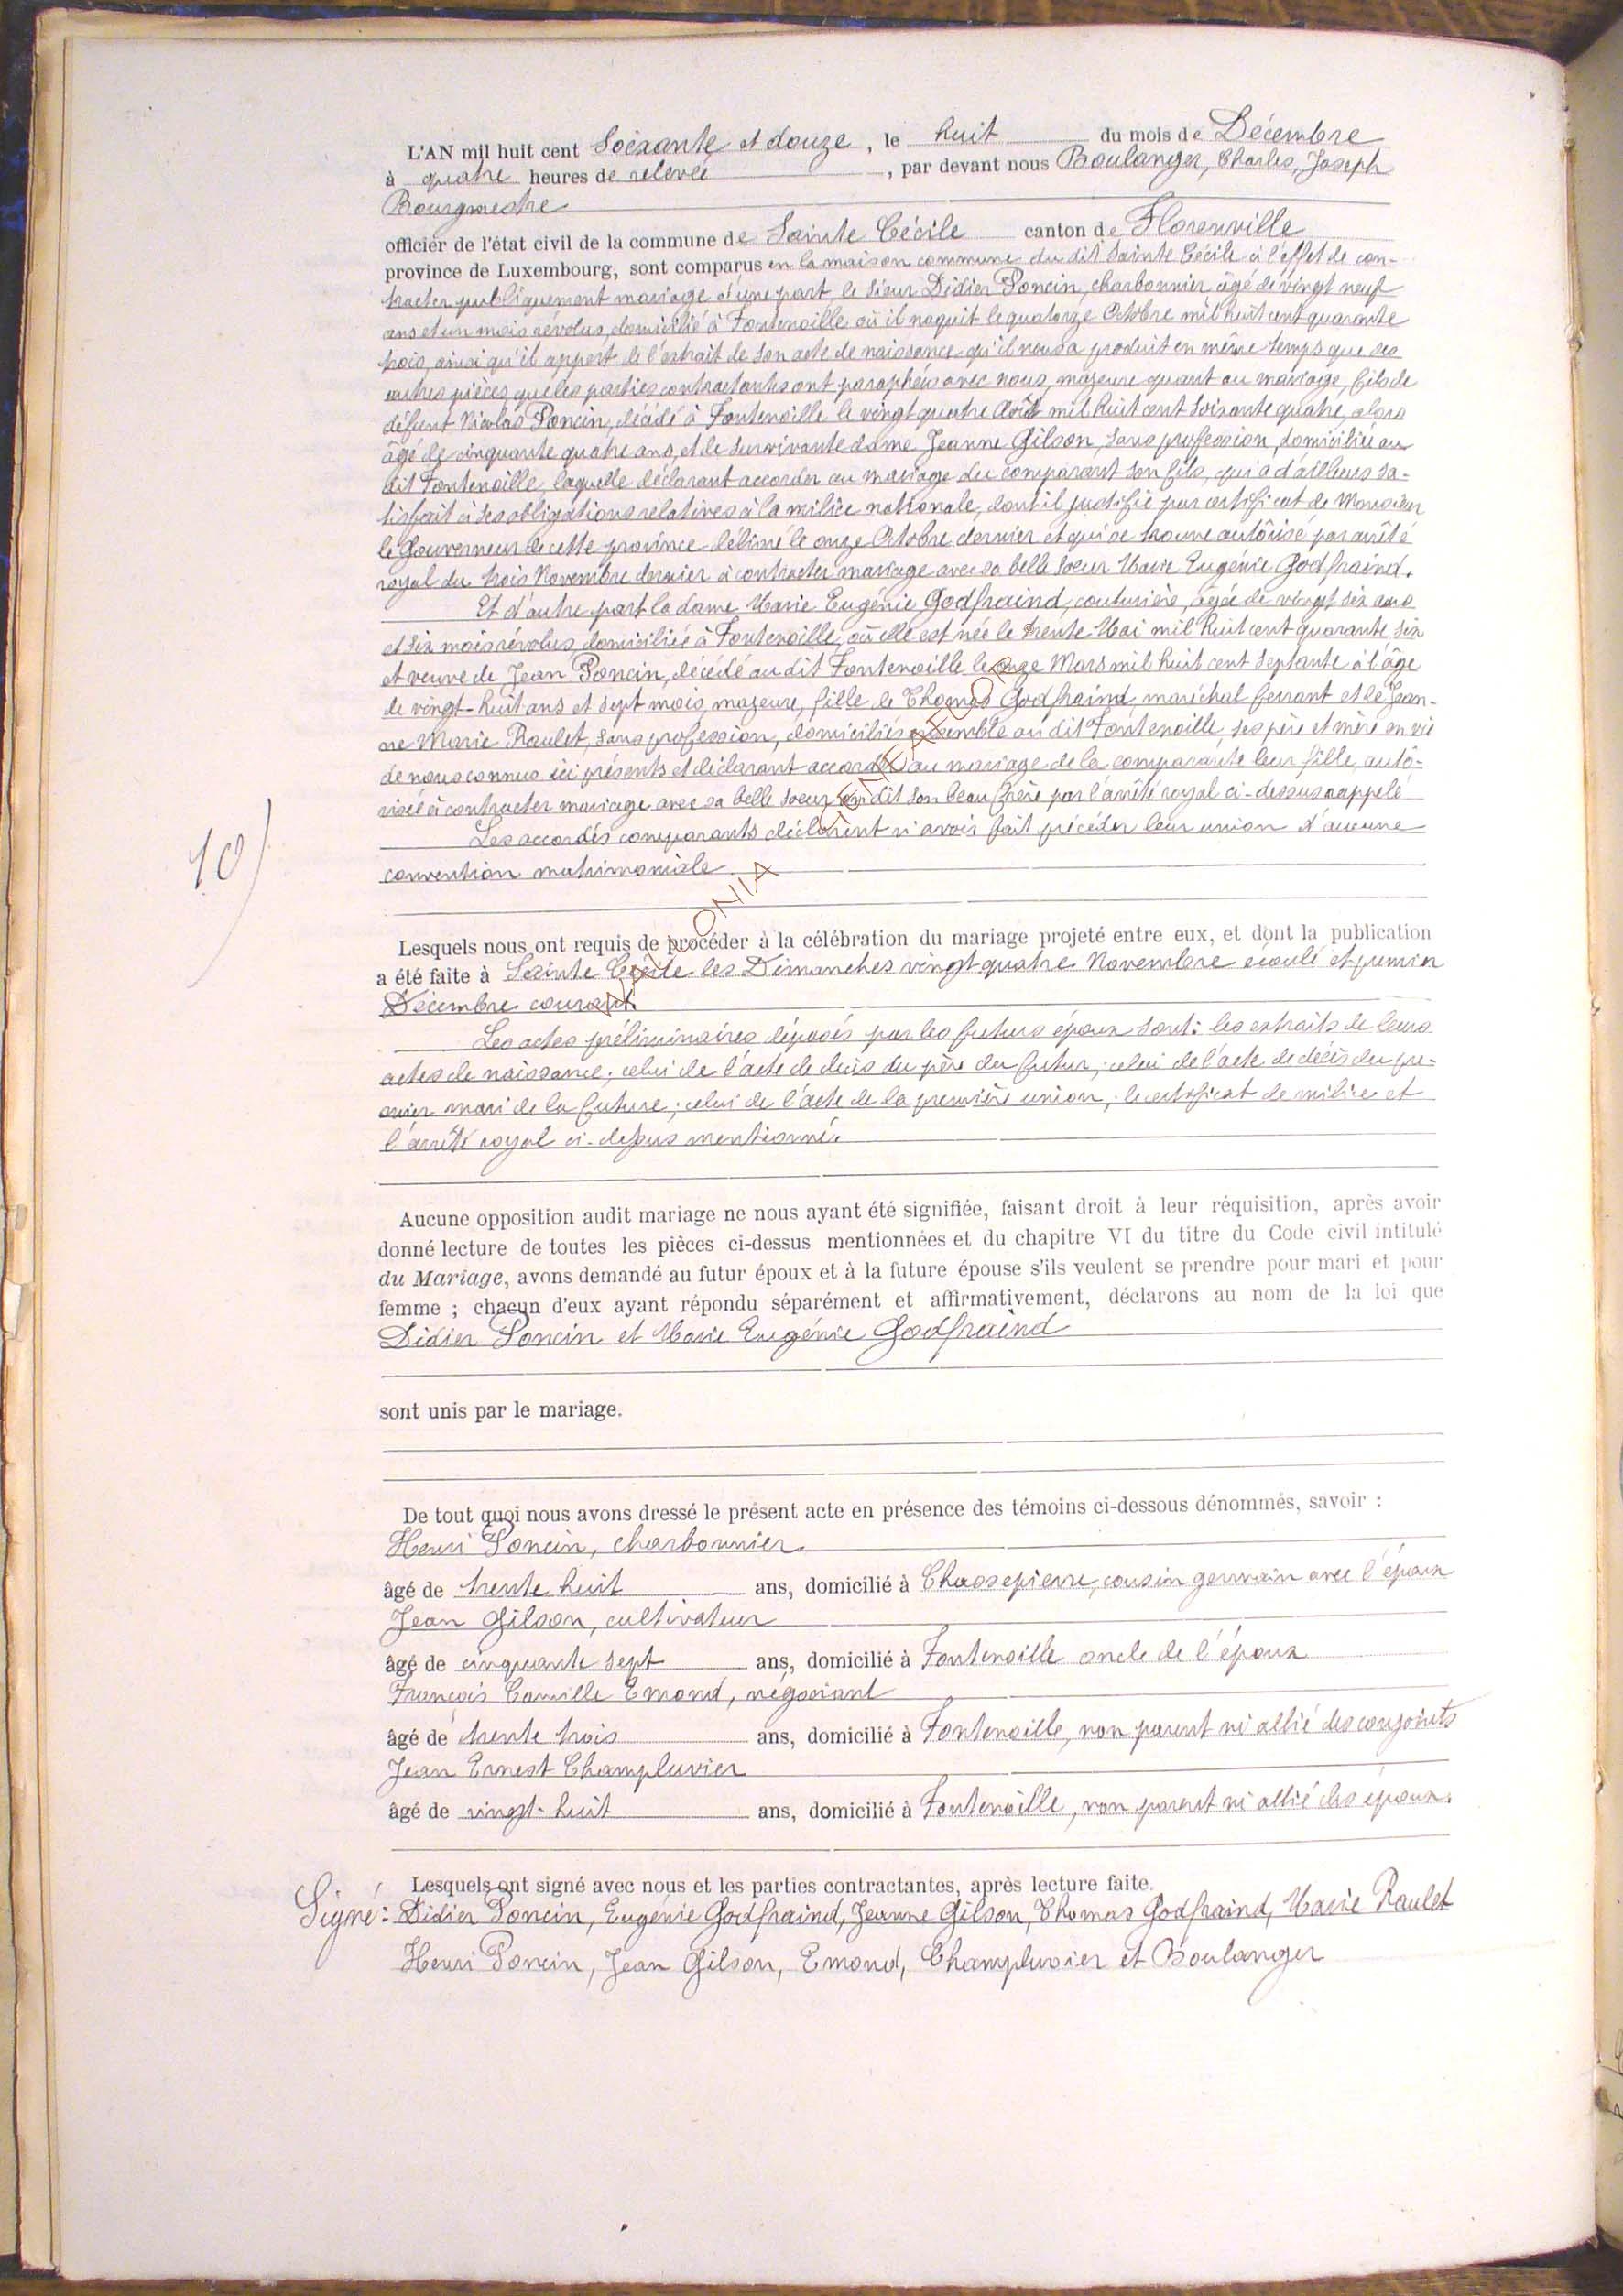 L'AN mil huit cent Soixante et douze, le huit du mois de Décembre
à quatre heures de relevée, par devant nous Boulanger, Charles, Joseph
Bourgmestre
officier de l'état civil de la commune de Sainte Cécile canton de Florenville
province de Luxembourg, sont comparus en la maison commune du dit Sainte Cécile à l'effet de con-
tracter publiquement mariage d'une part, le sieur Didier Poncin, charbonnier âgé de vingt neuf
ans et un mois révolus, domicilié à Fontenoille où il naquit le quatorze Octobre mil huit cent quarante
trois, ainsi qu'il appert de l'extrait de son acte de naissance qu'il nous a produit en même temps que ses
autres pièces que les parties contractantes ont paraphées avec nous, majeure quant au mariage, fils de
défunt Nicolas Poncin, décédé à Fontenoille le vingt quatre Août mil huit cent soixante quatre, alors
âgé de cinquante quatre ans, et de survivante dame Jeanne Gilson, sans profession, domiciliée au
dit Fontenoille, laquelle déclarant accorder au mariage du comparant son fils, qui a d'ailleurs sa-
tisfait à ses obligations relatives à la milice nationale, dont il justifie par certificat de Monsieur
le Gouverneur de cette province délivré le onze Octobre dernier et qui se trouve autôrisé par arrêté
royal du trois Novembre dernier à contracter mariage avec sa belle soeur Marie Eugénie Godfraind.
Et d'autre part la dame Marie Eugénie Godfraind, couturière, âgée de vingt six ans
et six mois révolus, domiciliée à Fontenoille, où elle est née le trente Mai mil huit cent quarante six
et veuve de Jean Poncin, décédé au dit Fontenoille le onze Mars mil huit cent septante à l'âge
de vingt-huit ans et sept mois, majeure, fille de Thomas Godfraind, maréchal ferrant et de Jean-
ne Marie Raulet, sans profession, domiciliés ensemble au dit Fontenoille, ses père et mère en vie
de nous connus ici présents et déclarant accorder au mariage de la comparante leur fille, autô-
risée à contracter mariage avec sa belle soeur ou dit son beau frère par l'arrêté royal ci-dessus rappelé
Les accordés comparants déclarent n'avoir fait précéder leur union d'aucune
convention matrimoniale
10)
Lesquels nous ont requis de procéder à la célébration du mariage projeté entre eux, et dont la publication
a été faite à Sainte Cécile les Dimanches vingt-quatre Novembre écoulé et premier
Décembre courant.
Les actes préliminaires déposés par les futurs époux sont: les extraits de leurs
actes de naissance; celui de l'acte de décès du père du futur; celui de l'acte de décès du pre-
mier mari de la future; celui de l'acte de la première union; le certificat de milice et
l'arrêté royal ci-dessus mentionné.
Aucune opposition audit mariage ne nous ayant été signifiée, faisant droit à leur réquisition, après avoir
donné lecture de toutes les pièces ci-dessus mentionnées et du chapitre VI du titre du Code civil intitulé
du Mariage, avons demandé au futur époux et à la future épouse s'ils veulent se prendre pour mari et pour
femme ; chacun d'eux ayant répondu séparément et affirmativement, déclarons au nom de la loi que
Didier Poncin et Marie Eugénie Godfraind
sont unis par le mariage.
De tout quoi nous avons dressé le présent acte en présence des témoins ci-dessous dénommés, savoir :
Henri Poncin, charbonnier
âgé de trente huit ans, domicilié à Chassepierre, cousin germain avec l'époux
Jean Gilson, cultivateur
âgé de cinquante sept ans, domicilié à Fontenoille oncle de l'époux
François Camille Emond, négociant
âgé de trente trois ans, domicilié à Fontenoille, non parent ni allié des conjoints
Jean Ernest Champluvier
âgé de vingt-huit ans, domicilié à Fontenoille, non parent ni allié des époux.
Lesquels ont signé avec nous et les parties contractantes, après lecture faite.
Signé: Didier Poncin, Eugénie Godfraind, Jeanne Gilson, Thomas Godfraind, Marie Raulet
Henri Poncin, Jean Gilson, Emond, Champluvier et Boulanger